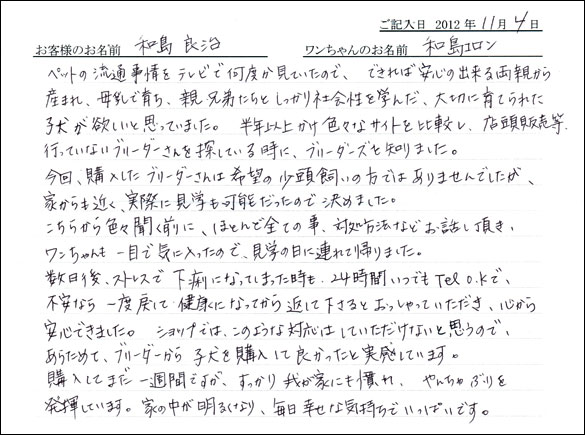 ご記入日 2012年11月4日
お客様のお名前 和島良治 ワンちゃんのお名前 和島コロン
ペットの流通事情をテレビで何度か見ていたので、できれば安心の出来る両親から
産まれ、母乳で育ち、親・兄弟たちとしっかり社会性を学んだ、大切に育てられた
子犬が欲しいと思っていました。半年以上かけ色々なサイトを比較し、店頭販売等、
行っていないブリーダーさんを探している時に、ブリーダーズを知りました。
今回、購入したブリーダーさんは希望の少頭飼いの方ではありませんでしたが、
家からも近く、実際に見学も可能だったので決めました。
こちらから色々聞く前に、ほとんど全ての事、対処方法などお話し頂き、
ワンちゃんも一目で気に入ったので、見学の日に連れて帰りました。
数日後、ストレスで下痢になってしまった時も、24時間いつでもTel O.Kで、
不安なら一度戻して健康になってから返して下さるとおっしゃっていただき、心から
安心できました。ショップでは、このような対応はしていただけないと思うので、
あらためて、ブリーダーから子犬を購入して良かったと実感しています。
購入してまだ一週間ですが、すっかり我が家にも慣れ、やんちゃぶりを
発揮しています。家の中が明るくなり、毎日幸せな気持ちでいっぱいです。